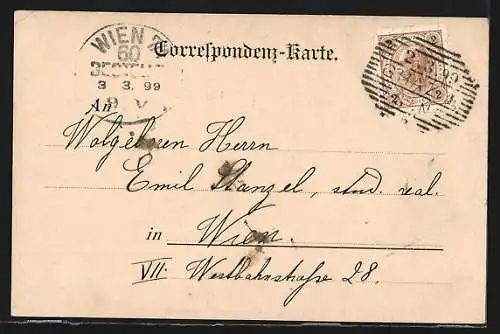 WIEN 7
60
BESTELLT
3 3. 99
9 V
Correspondenz-Karte.
2 3 99
An
Wolgeboren Herrn
Emil Stanzel, stud. real.
in Wien.
VII. Westbahnstraße 28.